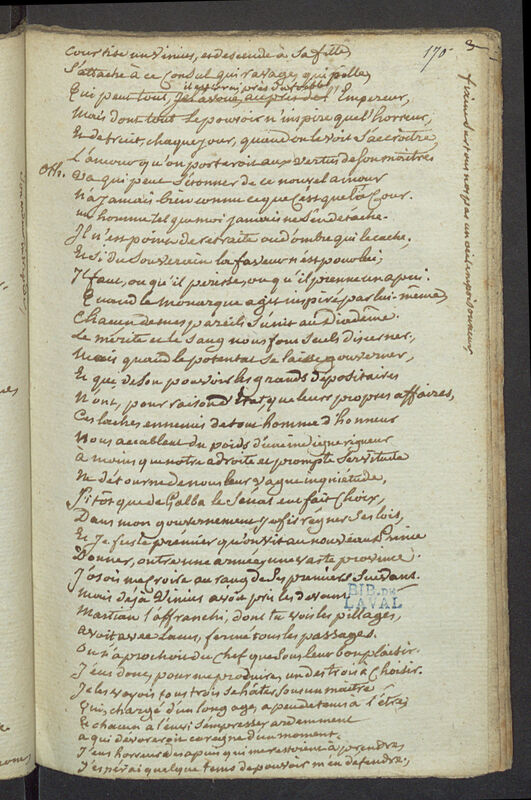 170
Courtise un Vinius, et descende à sa fille
S'attache à ce Consul qui ravage, qui pille,
il est vrai, près
Qui peut tout, je l'avoue, auprès de l'Empereur,
Mais dont tout le pouvoir n'inspire que l'horreur,
Et détruit, chaque jour, quand on le voit s'accroître,
L'amour qu'on porteroit aux vertus de son maître
Oth. Ceux qui peut s'étonner de ce nouvel amour
N'a jamais bien connu ce que c'est que la Cour.
un homme tel que moi jamais ne s'en détache.
Il n'est point de retraite ou d'ombre qui le cache.
Et si du Souverain la faveur n'est pour lui,
Il faut, ou qu'il périsse, ou qu'il prenne un appui.
Quand le Monarque agit inspiré par lui-même,
Chacun de mes pareils s'unit au Diadême.
Le mérite et le sang nous font seuls discerner,
Mais quand le potentat se laisse gouverner,
Et que de son pouvoir les grands dépositaires
N'ont, pour raison d'état, que leurs propres affaires,
Ces laches ennemis de tout homme d'honneur
Nous accablent du poids d'une indigne rigueur
à moins que notre adroite et prompte servitude
Ne détourne de nous leur vague inquiétude,
Sitôt que de Galba le Sénat eut fait choix,
Dans mon gouvernement j'y fis régner ses lois,
Et je fus le premier qu'on vit au nouveau Prince
Donner, outre une armée, une vaste province.
J'osois me croire au rang de ses premiers Suivans.
Mais déjà Vinius avoit pris les devans
BIB. DE LAVAL
Martian l'affranchi, dont tu vois les pillages,
Avoit avec Lacus, fermé tous les passages.
On n'approchoit du Chef que sous leur bon plaisir.
J'eus donc, pour me produire, un des trois à choisir.
Je les voyois tous trois se hâter sous un maître
Qui, chargé d'un long age, a peu de tems à l'être,
Et chacun à l'envi s'empresser ardemment
à qui dévoreroit ce regne d'un moment.
J'eus horreur des apuis qui me restoient à prendre,
J'espérai quelque tems de pouvoir m'en défendre,